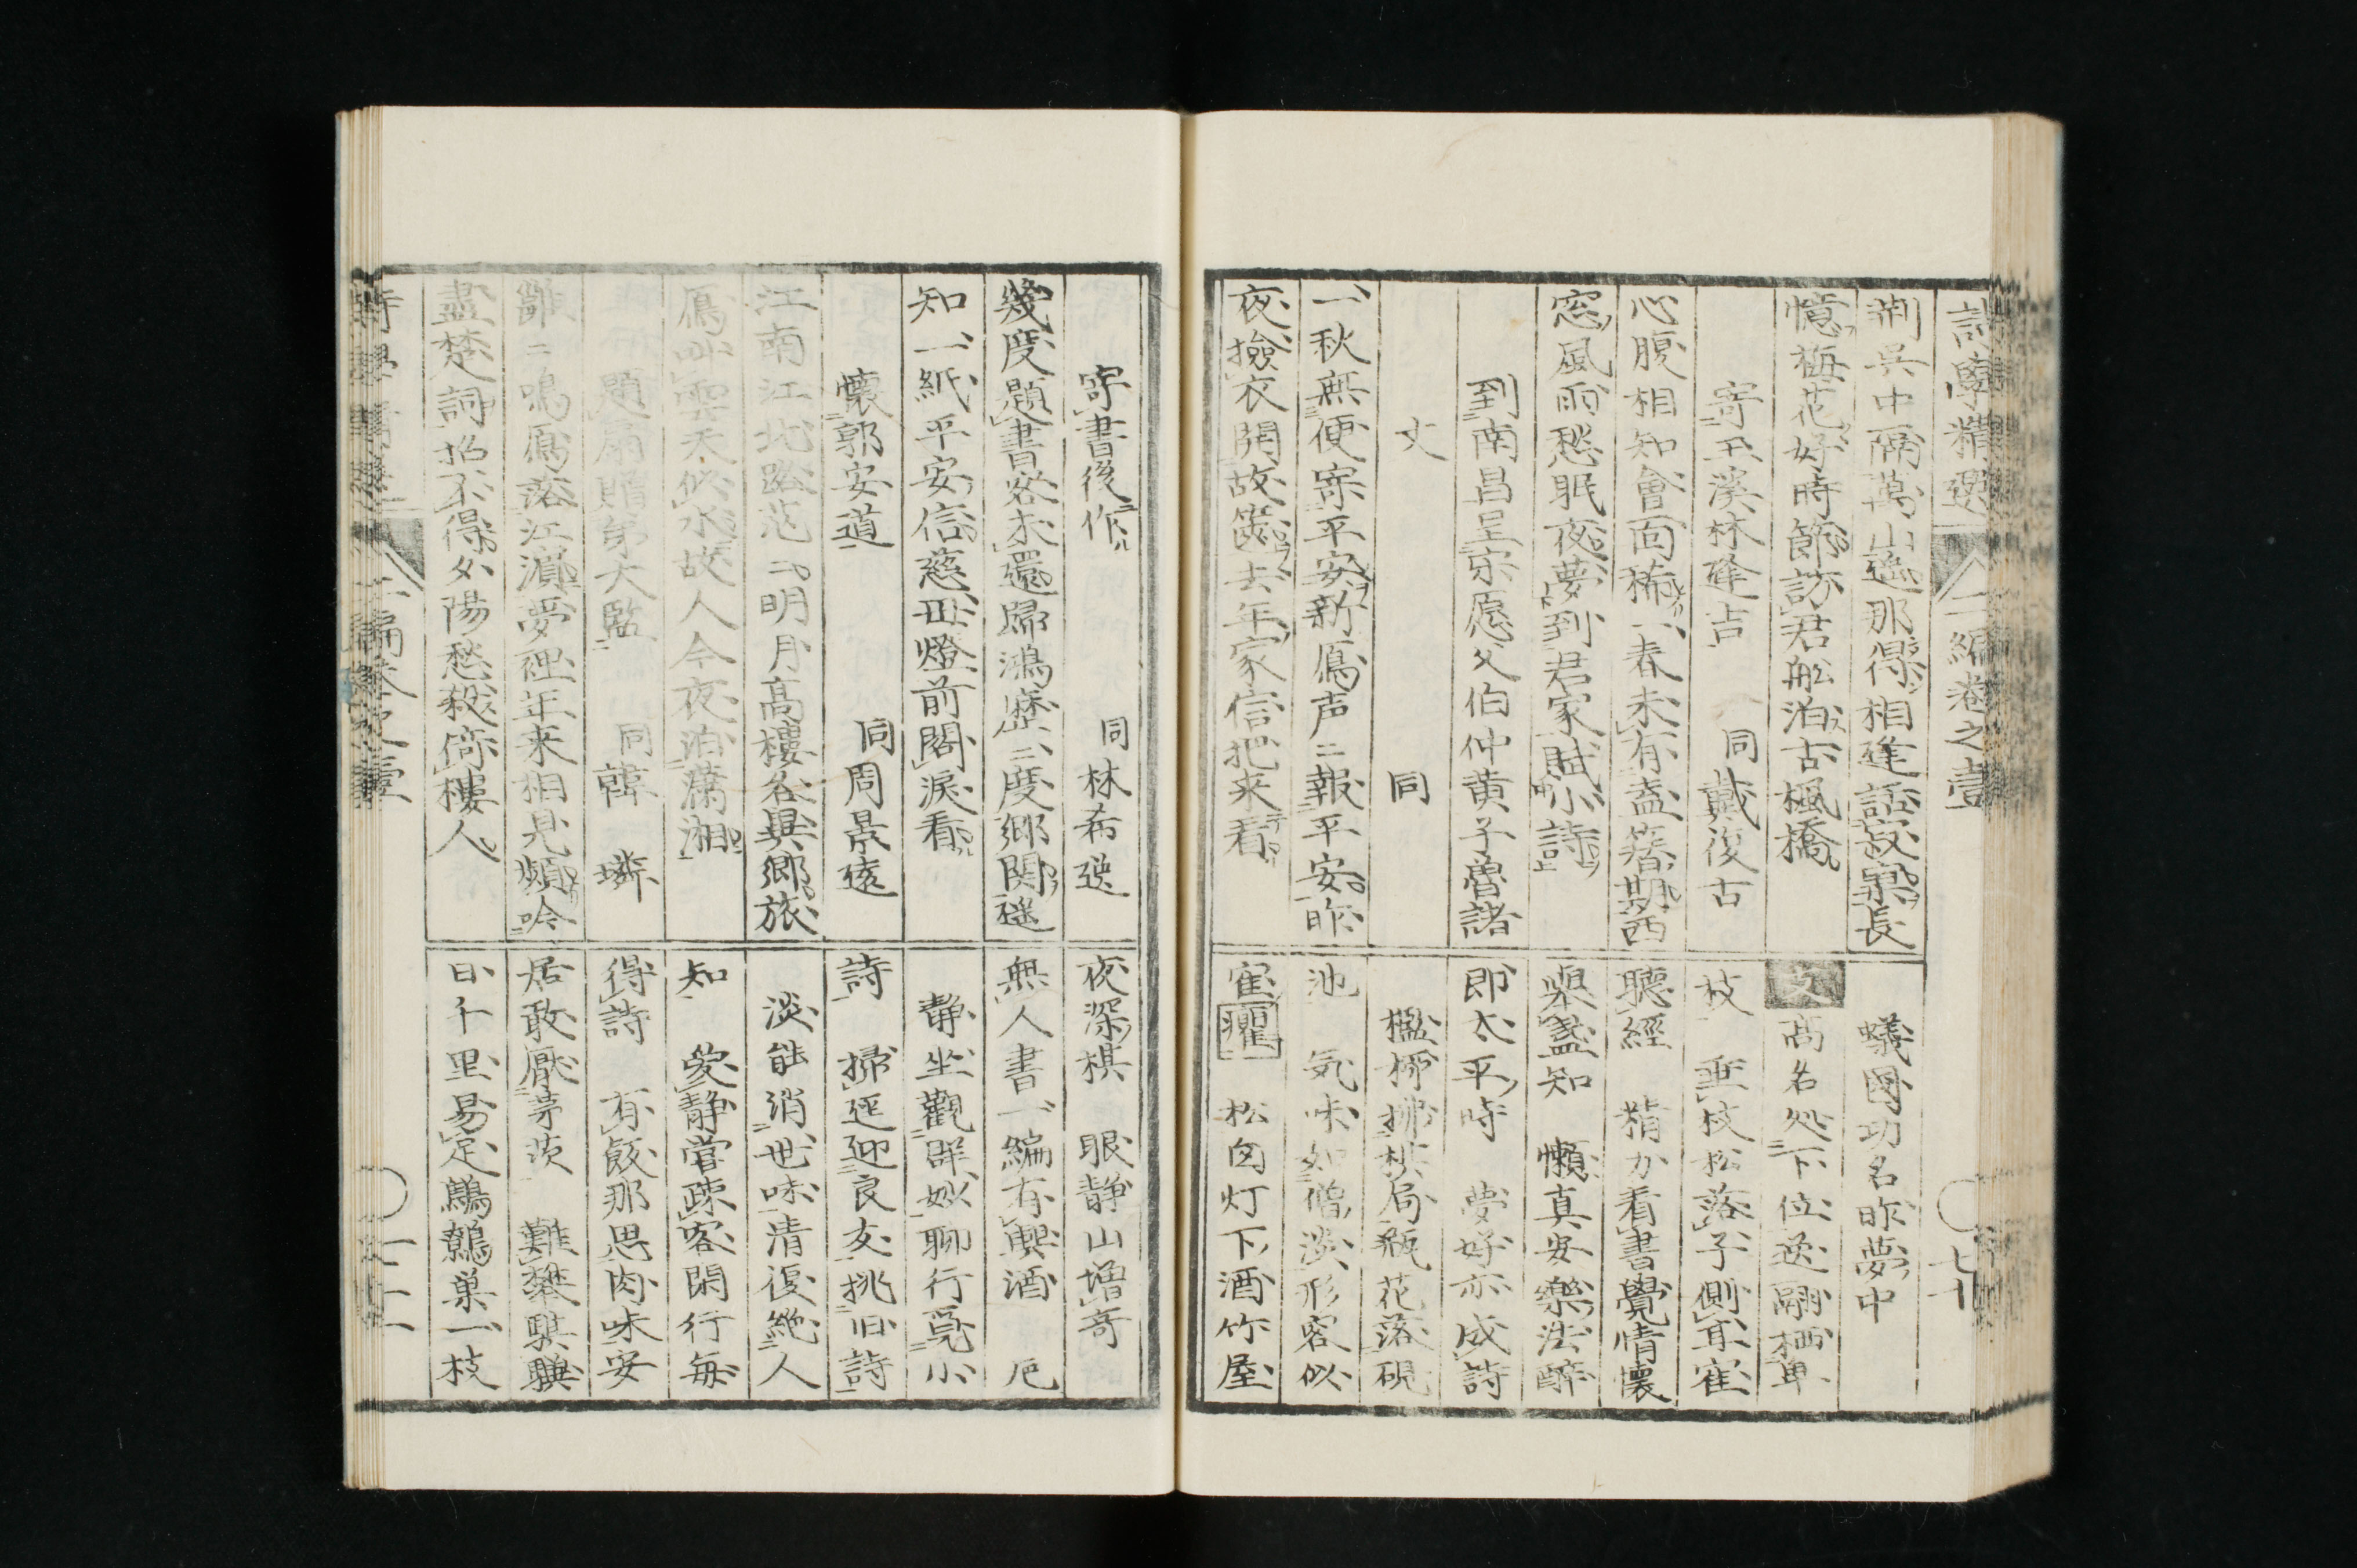 詩學精選 二編卷之壹
荊吳中隔萬山遥那得相逢話寂寞長
憶梅花好時節訪君舩泊古楓橋
寄玉溪林逢吉 同戴復古
心腹相知會面稀一春未有盍簪期西
窓風雨愁眠夜夢到君家賦小詩
到南昌呈宋愿父伯仲黄子魯諸
丈 同
一秋無便寄平安新鴈声二報平安昨
夜撿衣開故篋去年家信把来看
蟻國功名昨夢中
高名処下位逸翮栖卑
枝 垂枝松落子側耳寉
聽經 精力看書覺情懐
舉盞知 懶真安樂法醉
即太平時 夢好亦成詩
楹栁拂棋局瓶花落硯
池 気味如僧淡形容似
寉癯 松囱灯下酒竹屋
七十
寄書後作 同林希逸
幾度題書客未還歸鴻歴二度郷関遥
知一紙平安信慈母燈前閣淚看
懷郭安道 同周景遠
江南江北路茫二明月高樓各異郷旅
鴈叫雲天似水故人今夜泊瀟湘
題扇贈弟大監 同韓 璘
雝二鳴鴈落江濵夢裡年来相見頻吟
盡楚詞招不得夕陽愁殺倚樓人
夜深棋 眼静山増奇
無人書一編有興酒一巵
静坐觀群妙聊行覓小
詩 掃延迎良友挑旧詩
淡能消世味清復絶人
知 愛静嘗疎客閑行毎
得詩 有飯那思肉味安
居敢厭茅茨 難攀騏驥
日千里易足鷦鷯巣一枝